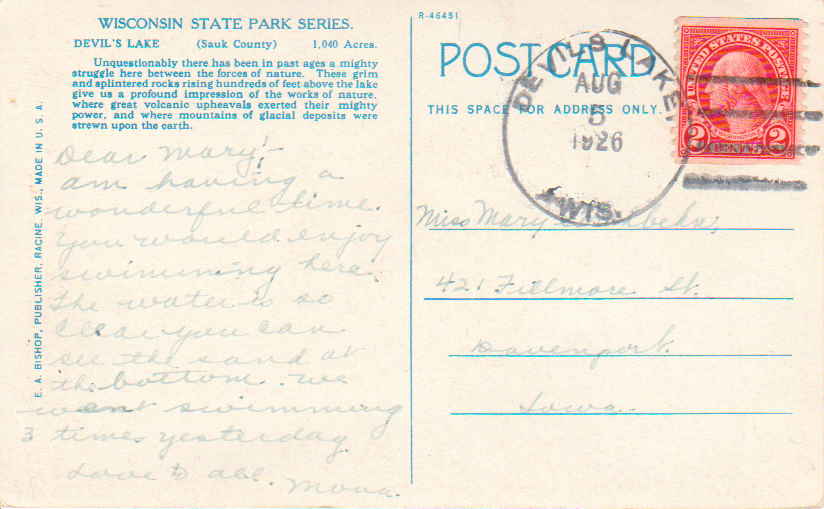 WISCONSIN STATE PARK SERIES.
DEVIL'S LAKE (Sauk County) 1,040 Acres.
Unquestionably there has been in past ages a mighty
struggle here between the forces of nature. These grim
and splintered rocks rising hundreds of feet above the lake
give us a profound impression of the works of nature,
where great volcanic upheavals exerted their mighty
power, and where mountains of glacial deposits were
strewn upon the earth.
E. A. BISHOP, PUBLISHER, RACINE, WIS., MADE IN U. S. A.
Dear Mary:-
Am having a
wonderful time.
You would enjoy
swimming here.
The water is so
clear you can
see the sand at
the bottom. We
went swimming
3 times yesterday.
Love to all.
R-46451
POST CARD
THIS SPACE FOR ADDRESS ONLY.
DEVILS LAKE,
AUG
5
1926
WIS.
UNITED STATES POSTAGE
2 2
Miss Mary
421 Fillmore St.
Davenport.
Iowa.